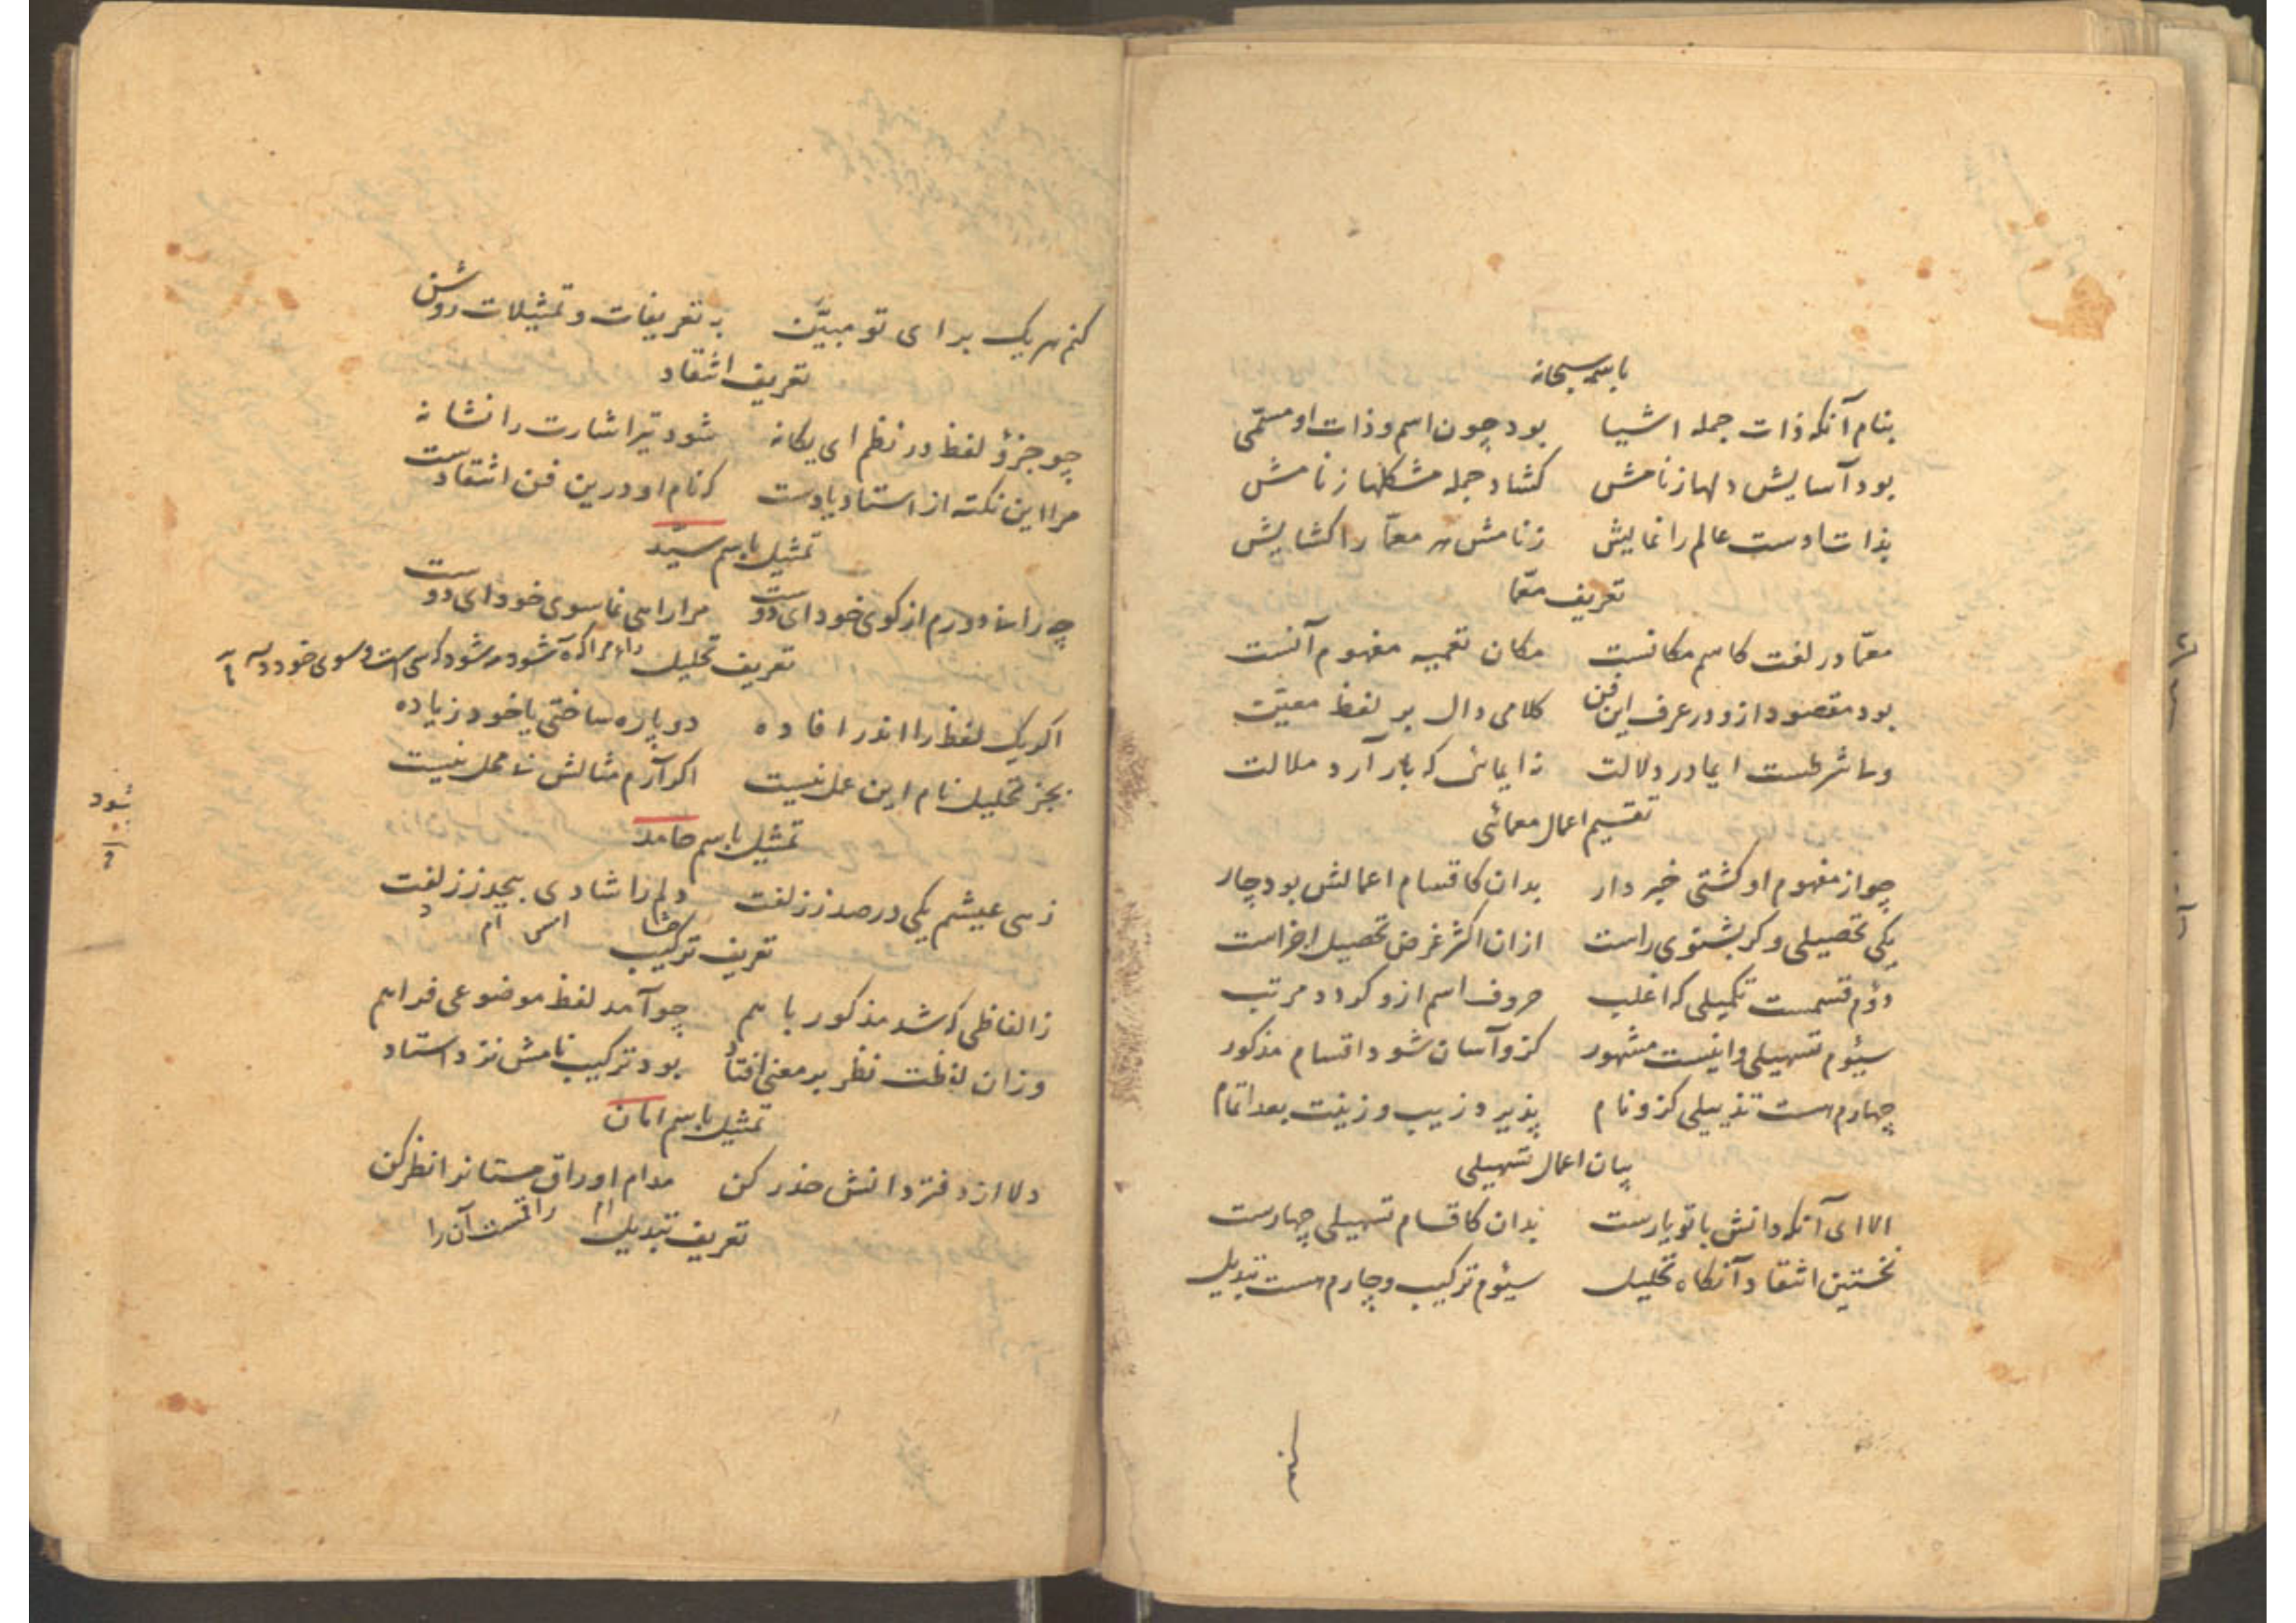 باسمه سبحانه
بنام آنکه ذات جمله اشیا بود چون اسم و ذات او مسمّی
بود آسایش دلها ز نامش کشاد جمله مشکلها ز نامش
بذات اوست عالم را نمایش ز نامش هر معمّا را کشایش
تعریف معمّا
معمّا در لغت کاسم مکانست مکان تعمیه مفهوم آنست
بود مقصود ازو در عرف این فن کلامی دال بر لفظ معیّن
ولی شرطست ایما در دلالت نه ایمائی که بار آرد ملالت
تقسیم اعمال معمائی
چو از مفهوم او کشتی خبر دار بدان کاقسام اعمالش بود چار
یکی تحصیلی و کر بشنوی راست ازان اکثر غرض تحصیل اجزاست
دوّم قسمست تکمیلی که اغلب حروف اسم ازو کردد مرتب
سیّوم تسهیلی و اینست مشهور کزو آسان شود اقسام مذکور
چهارم هست تذییلی کزو نام پذیرد زیب و زینت بعد اتمام
بیان اعمال تسهیلی
الا ای آنکه دانش با تو یارست بدان کاقسام تسهیلی چهارست
نخستین انتقاد آنکاه تحلیل سیّوم ترکیب و چارم هست تبدیل
کنم
کنم هر یک برای تو مبیّن به تعریفات و تمثیلات روشن
تعریف انتقاد
چو جزؤ لفظ در نظم ای یکانه شود تیر اشارت را نشانه
مرا این نکته از استاد یادست که نام او درین فن انتقادست
تمثیل باسم سیّد
چه رانی دورم از کوی خود ای دوست مرا راهی نما سوی خود ای دوست
تعریف تحلیل
اکر یک لفظ را اندر افاده دو پاره ساختی یا خود زیاده
بجز تحلیل نام این عمل نیست اکر آرم مثالش بی محل نیست
تمثیل باسم حامد
زهی عیشم یکی در صد ز زلفت دلم را شادی بیحد ز زلفت
تعریف ترکیب
ز الفاظی که شد مذکور با هم چو آمد لفظ موضوعی فراهم
وزان لفظت نظر بر معنی افتاد بود ترکیب نامش نزد استاد
تمثیل باسم امان
دلا از دفتر دانش حذر کن مدام اوراق مستان را نظر کن
تعریف تبدیل